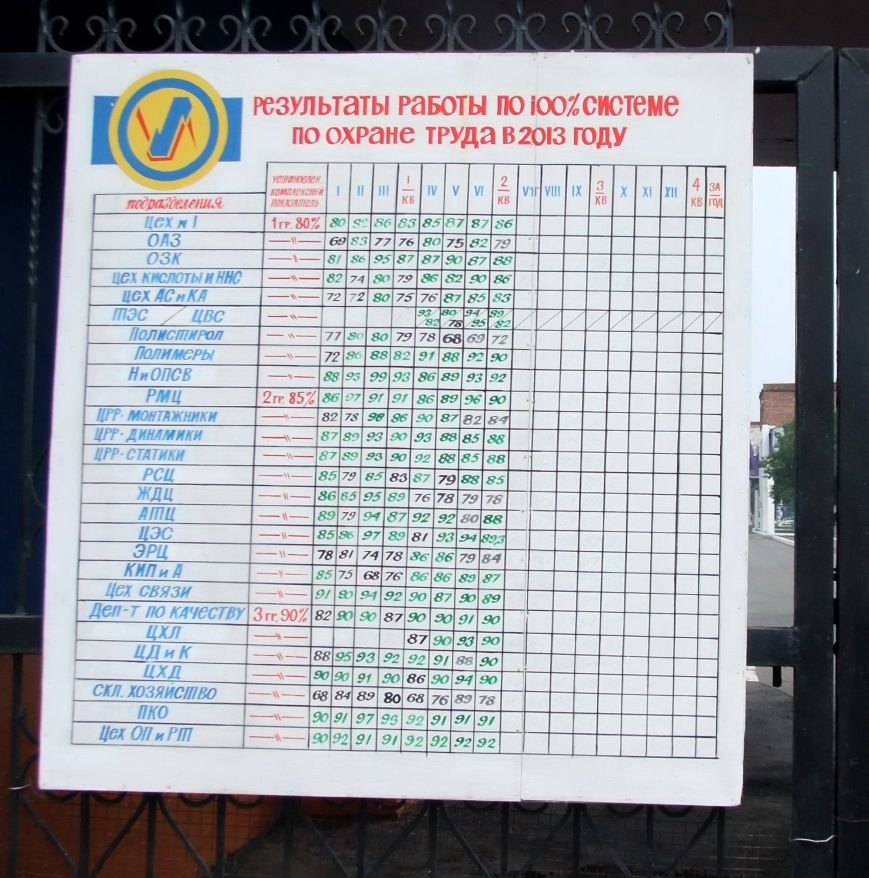 РЕЗУЛЬТАТЫ РАБОТЫ ПО 100% СИСТЕМЕ
ПО ОХРАНЕ ТРУДА В 2013 ГОДУ
подразделения УСТАНОВЛЕН. КОМПЛЕКСНЫЙ ПОКАЗАТЕЛЬ I II III 1 КВ IV V VI 2 КВ VII VIII IX 3 КВ X XI XII 4 КВ ЗА ГОД
ЦЕХ №1 1 гр. 80% 80 86 83 85 87 87 86
ОАЗ —〃— 69 83 77 76 80 75 82 79
ОЗК —〃— 81 86 95 87 87 90 87 88
ЦЕХ КИСЛОТЫ И ННС —〃— 82 74 80 79 86 82 90 86
ЦЕХ АС и КА —〃— 72 72 80 75 76 87 85 83
ТЭС / ЦВС —〃— 93/82 80/78 94/95 89/82
ПОЛИСТИРОЛ —〃— 77 80 80 79 78 68 69 72
ПОЛИМЕРЫ —〃— 72 86 88 82 91 88 92 90
НиОПСВ —〃— 88 93 99 93 86 89 93 92
РМЦ 2 гр. 85% 86 97 91 91 86 89 96 90
ЦРР-МОНТАЖНИКИ —〃— 82 78 98 86 90 87 82 84
ЦРР-ДИНАМИКИ —〃— 87 89 93 90 93 88 85 88
ЦРР-СТАТИКИ —〃— 87 89 93 90 92 88 85 88
РСЦ —〃— 85 79 85 83 87 79 88 85
ЖДЦ —〃— 86 85 95 89 76 78 79 78
АТЦ —〃— 89 79 94 87 92 92 80 88
ЦЭС —〃— 85 86 97 89 81 93 94 89,3
ЭРЦ —〃— 78 81 74 78 86 86 79 84
КИП и А —〃— 85 75 68 76 86 86 89 87
ЦЕХ СВЯЗИ —〃— 91 90 94 92 90 87 90 89
ДЕП-Т ПО КАЧЕСТВУ 3 гр. 90% 82 90 90 87 90 90 91 90
ЦХЛ —〃— 87 90 93 90
ЦД и К —〃— 88 95 93 92 92 91 88 90
ЦХД —〃— 90 90 91 90 86 90 94 90
СКЛ. ХОЗЯЙСТВО —〃— 68 84 89 80 68 76 89 78
ПКО —〃— 90 91 97 93 92 91 91 91
ЦЕХ ОП и РТП —〃— 90 92 91 91 92 92 92 92